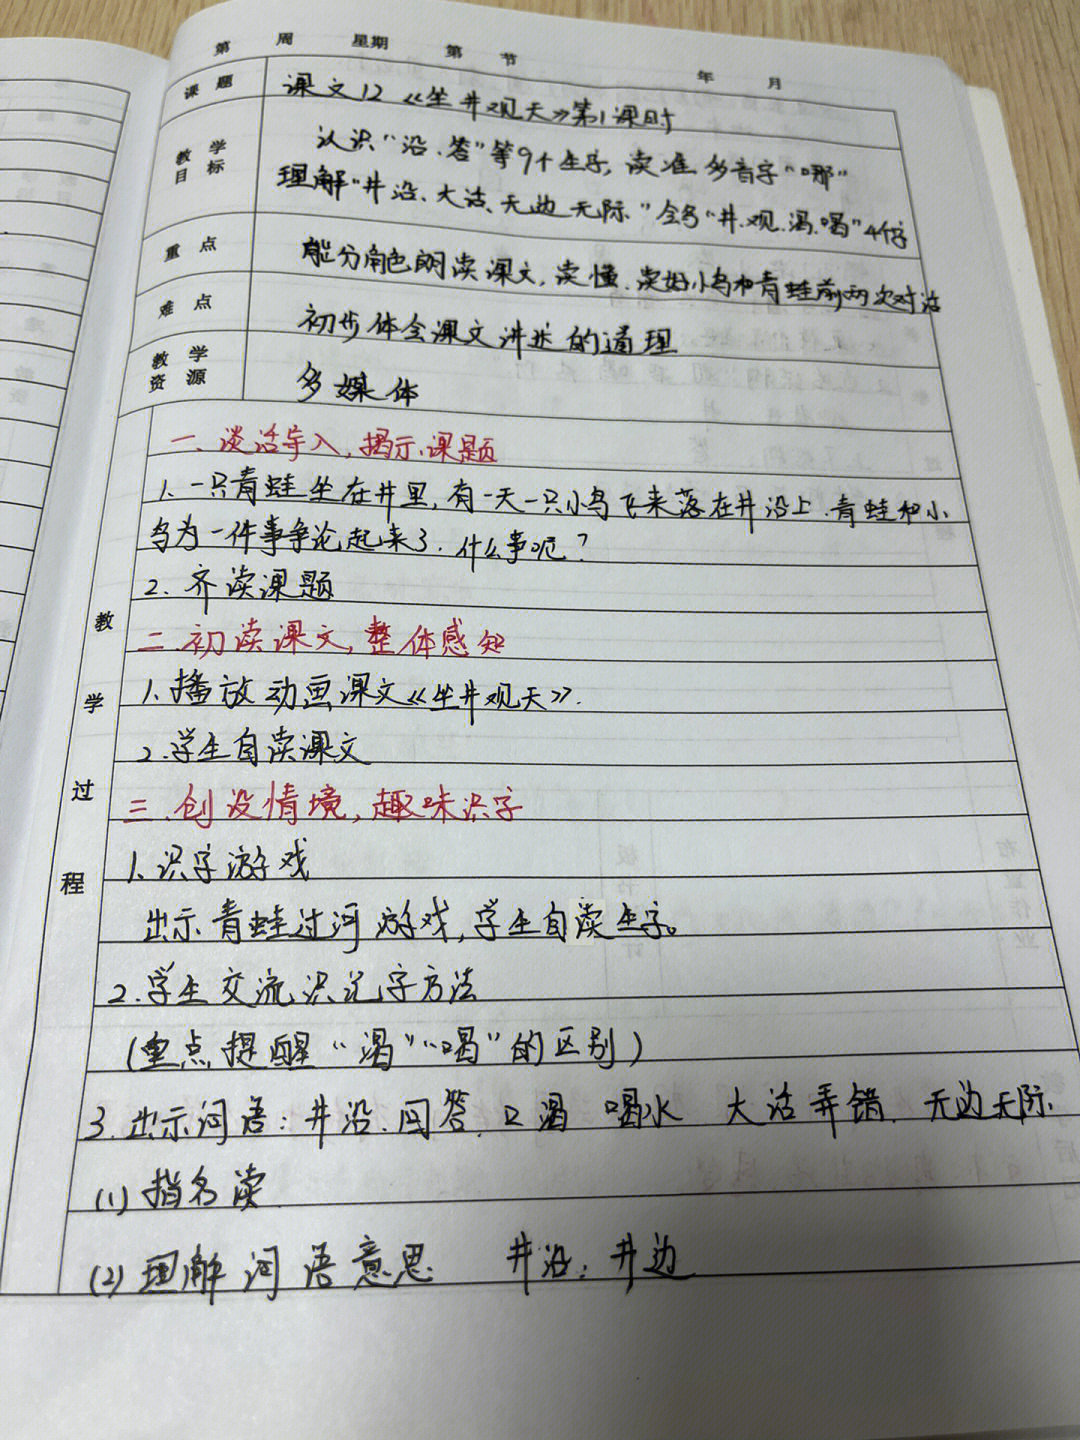 第 周 星期 第 节 年 月
课题 课文12《坐井观天》第1课时
教学目标 认识“沿、答”等9个生字,读准多音字“哪”
理解“井沿、大话、无边无际”会写“井、观、渴、喝”4个字
重点 能分角色朗读课文,读懂、读好小鸟和青蛙前两次对话
难点 初步体会课文讲述的道理
教学资源 多媒体
教学过程
一、谈话导入,揭示课题
1、一只青蛙坐在井里,有一天一只小鸟飞来落在井沿上.青蛙和小
鸟为一件事争论起来了.什么事呢?
2.齐读课题
二.初读课文,整体感知
1.播放动画课文《坐井观天》.
2.学生自读课文
三.创设情境,趣味识字
1、识字游戏
出示青蛙过河游戏,学生自读生字。
2.学生交流识记字方法
(重点提醒“渴”“喝”的区别)
3.出示词语:井沿.回答.口渴 喝水 大话弄错.无边无际.
(1)指名读.
(2)理解词语意思 井沿:井边